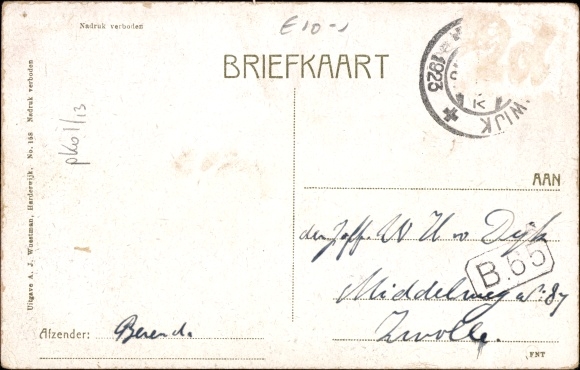 Nadruk verboden
E10-1
BRIEFKAART
1923
WIJK
pko1/13
Uitgave A. J. Wuestman, Harderwijk. No. 168 Nadruk verboden
AAN
W H v Dijk
B.65
Middelweg No. 87
Zwolle.
Afzender: Berend.
FNT